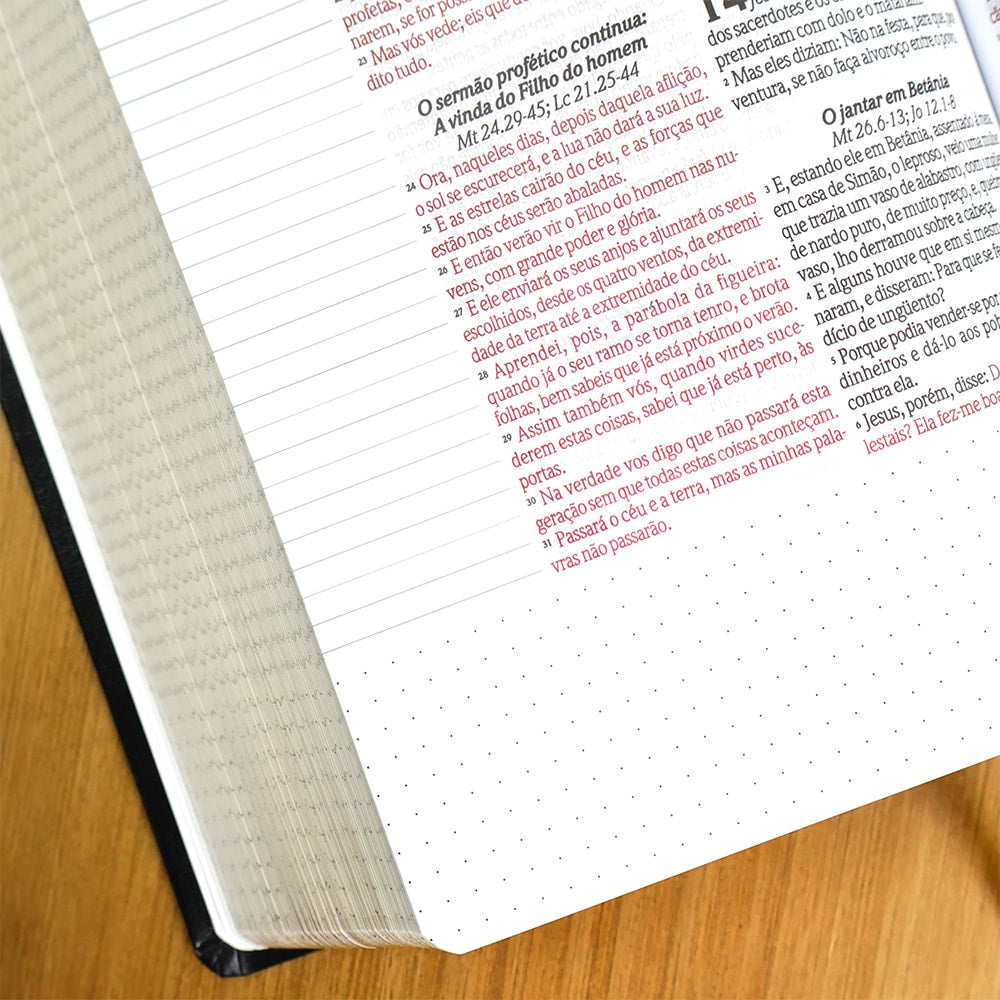 profetas, e
narem, se for possí
23 Mas vós vede; eis que
dito tudo.
O sermão profético continua:
A vinda do Filho do homem
Mt 24.29-45; Lc 21.25-44
24 Ora, naqueles dias, depois daquela aflição,
o sol se escurecerá, e a lua não dará a sua luz.
25 E as estrelas cairão do céu, e as forças que
estão nos céus serão abaladas.
26 E então verão vir o Filho do homem nas nu-
vens, com grande poder e glória.
27 E ele enviará os seus anjos e ajuntará os seus
escolhidos, desde os quatro ventos, da extremi-
dade da terra até a extremidade do céu.
28 Aprendei, pois, a parábola da figueira:
quando já o seu ramo se torna tenro, e brota
folhas, bem sabeis que já está próximo o verão.
29 Assim também vós, quando virdes suce-
derem estas coisas, sabei que já está perto, às
portas.
30 Na verdade vos digo que não passará esta
geração sem que todas estas coisas aconteçam.
31 Passará o céu e a terra, mas as minhas pala-
vras não passarão.
14
dos sacerdotes e os
prenderiam com dolo e o matariam.
2 Mas eles diziam: Não na festa, para que, por
ventura, se não faça alvoroço entre o povo.
O jantar em Betânia
Mt 26.6-13; Jo 12.1-8
3 E, estando ele em Betânia, assentado à mesa
em casa de Simão, o leproso, veio uma mulhe
que trazia um vaso de alabastro, com ungüe
de nardo puro, de muito preço, e, quebra
vaso, lho derramou sobre a cabeça.
4 E alguns houve que em si mesm
naram, e disseram: Para que se fe
dício de ungüento?
5 Porque podia vender-se por
dinheiros e dá-lo aos pob
contra ela.
6 Jesus, porém, disse: D
lestais? Ela fez-me boa